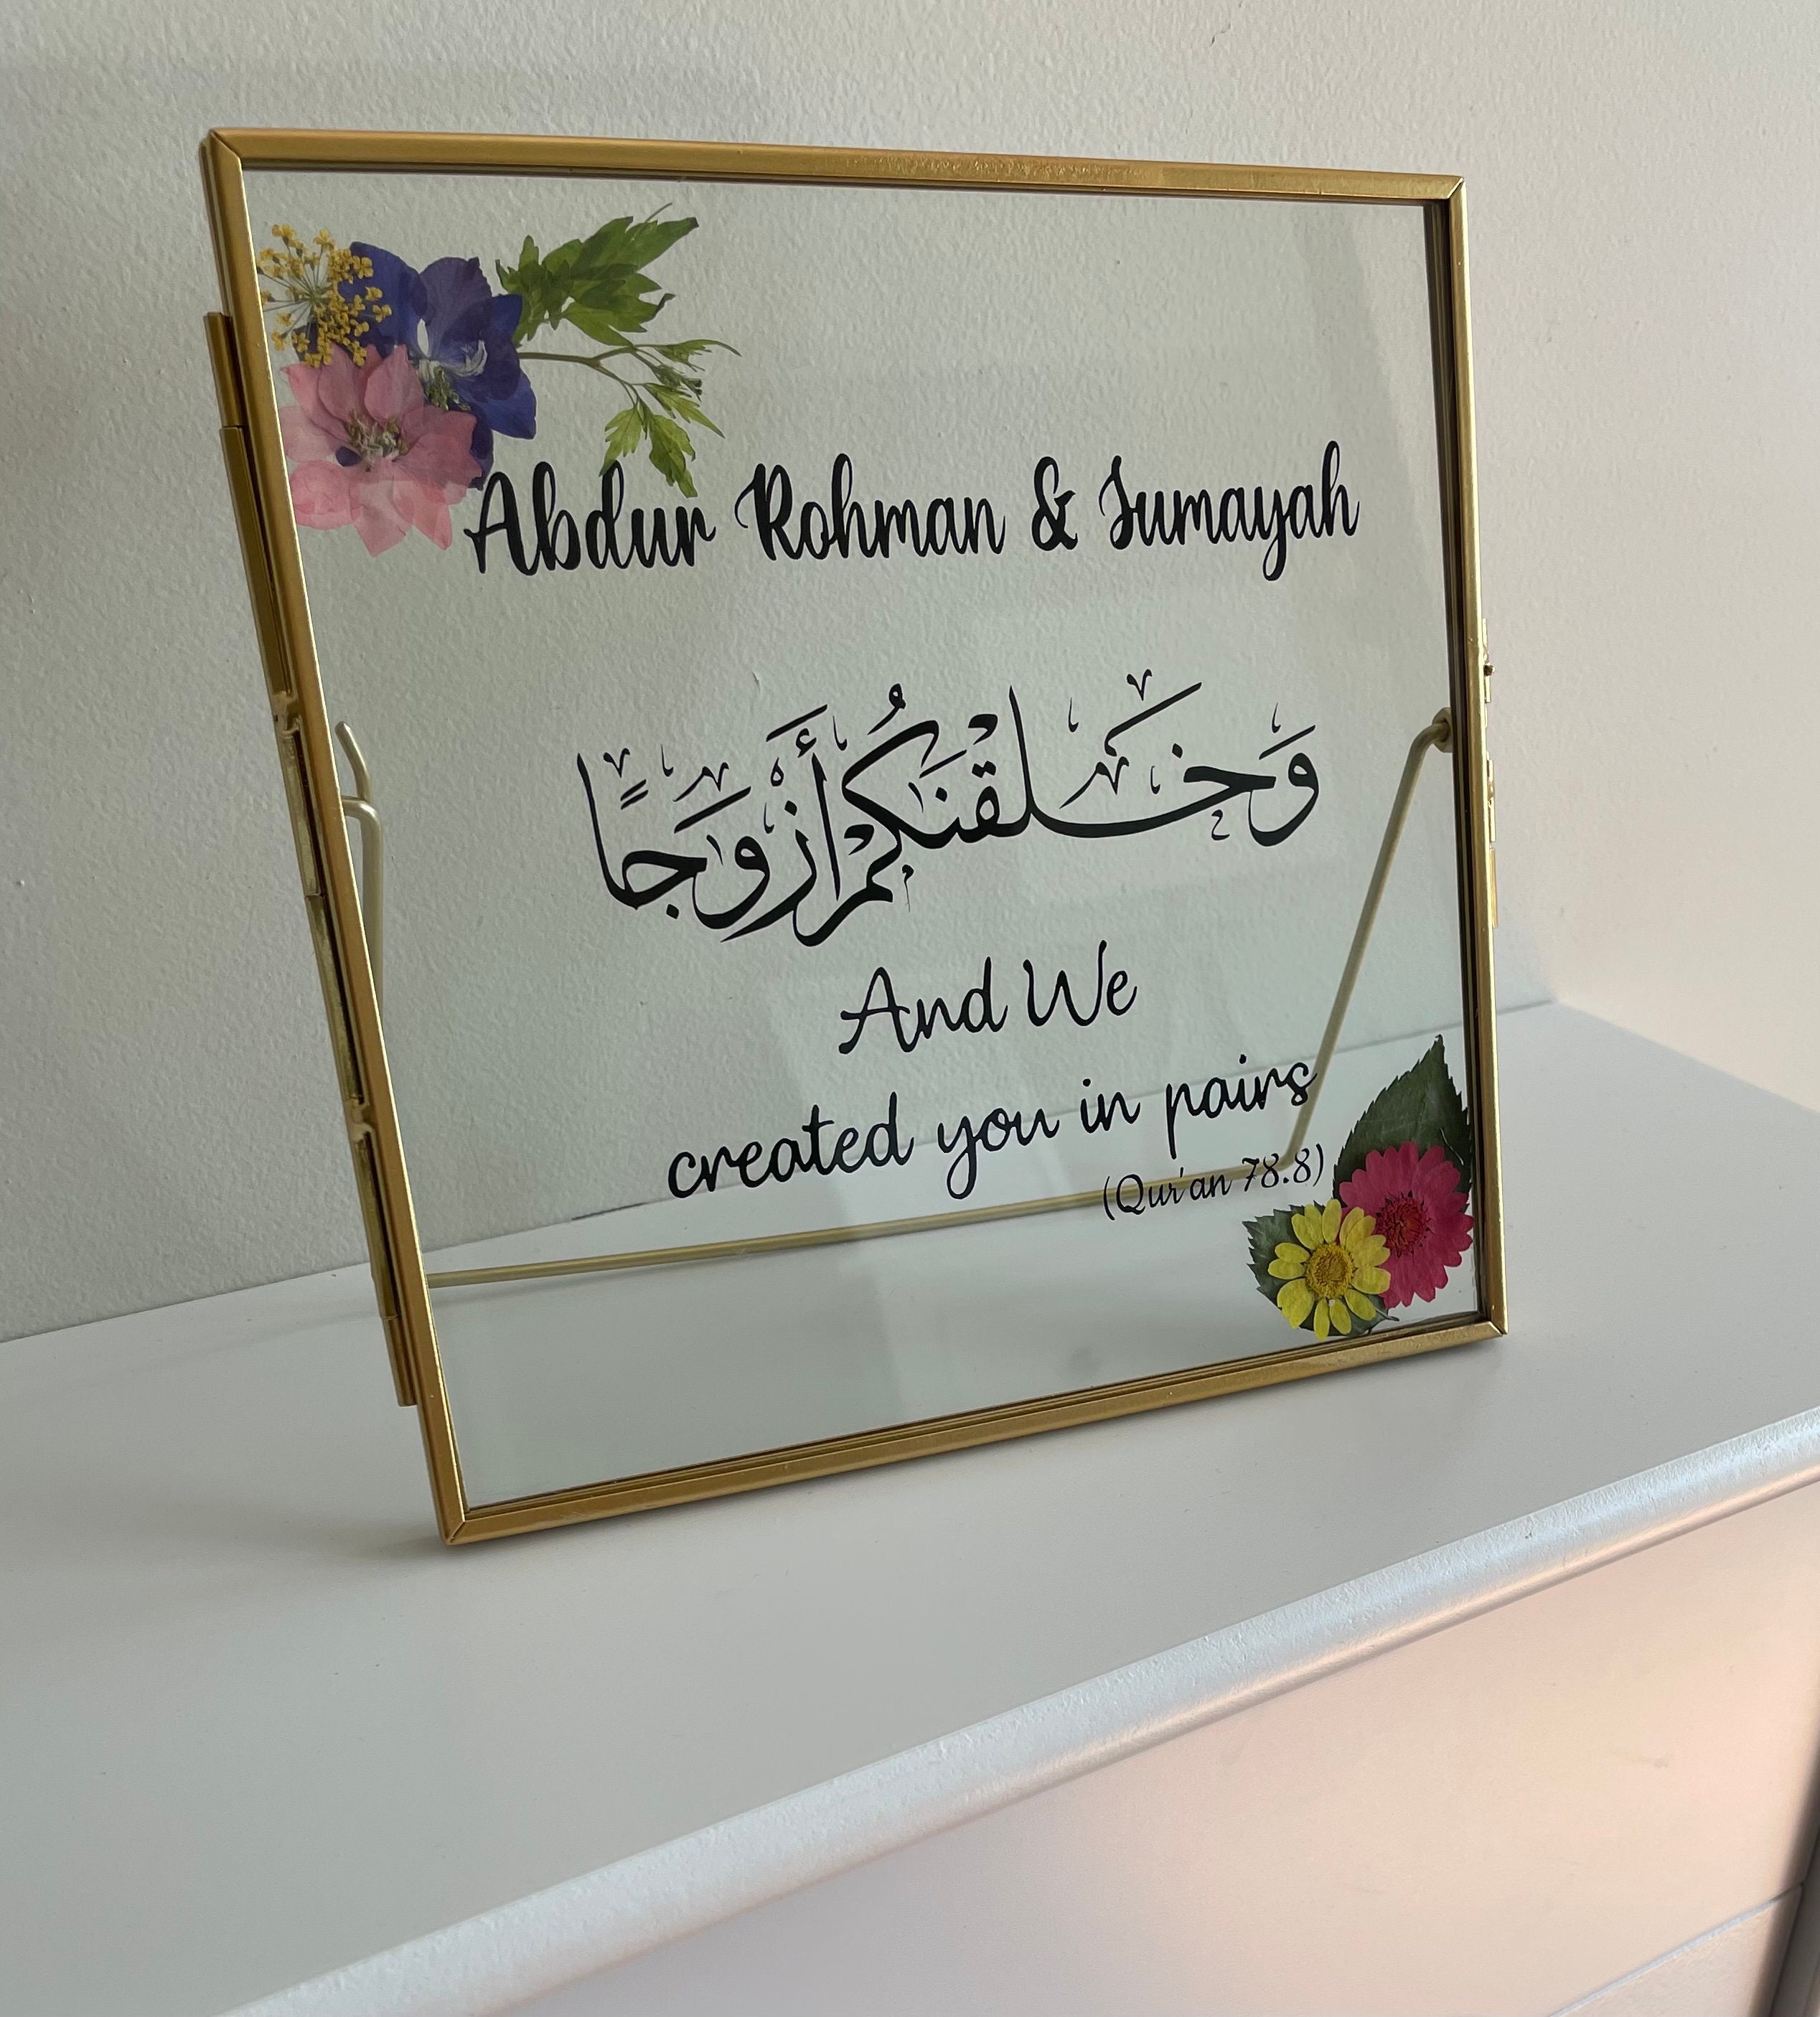 Abdur Rohman & Sumayah
وَخَلَقْنَكُمْ أَزْوَجًا
And We
created you in pairs
(Qur'an 78.8)